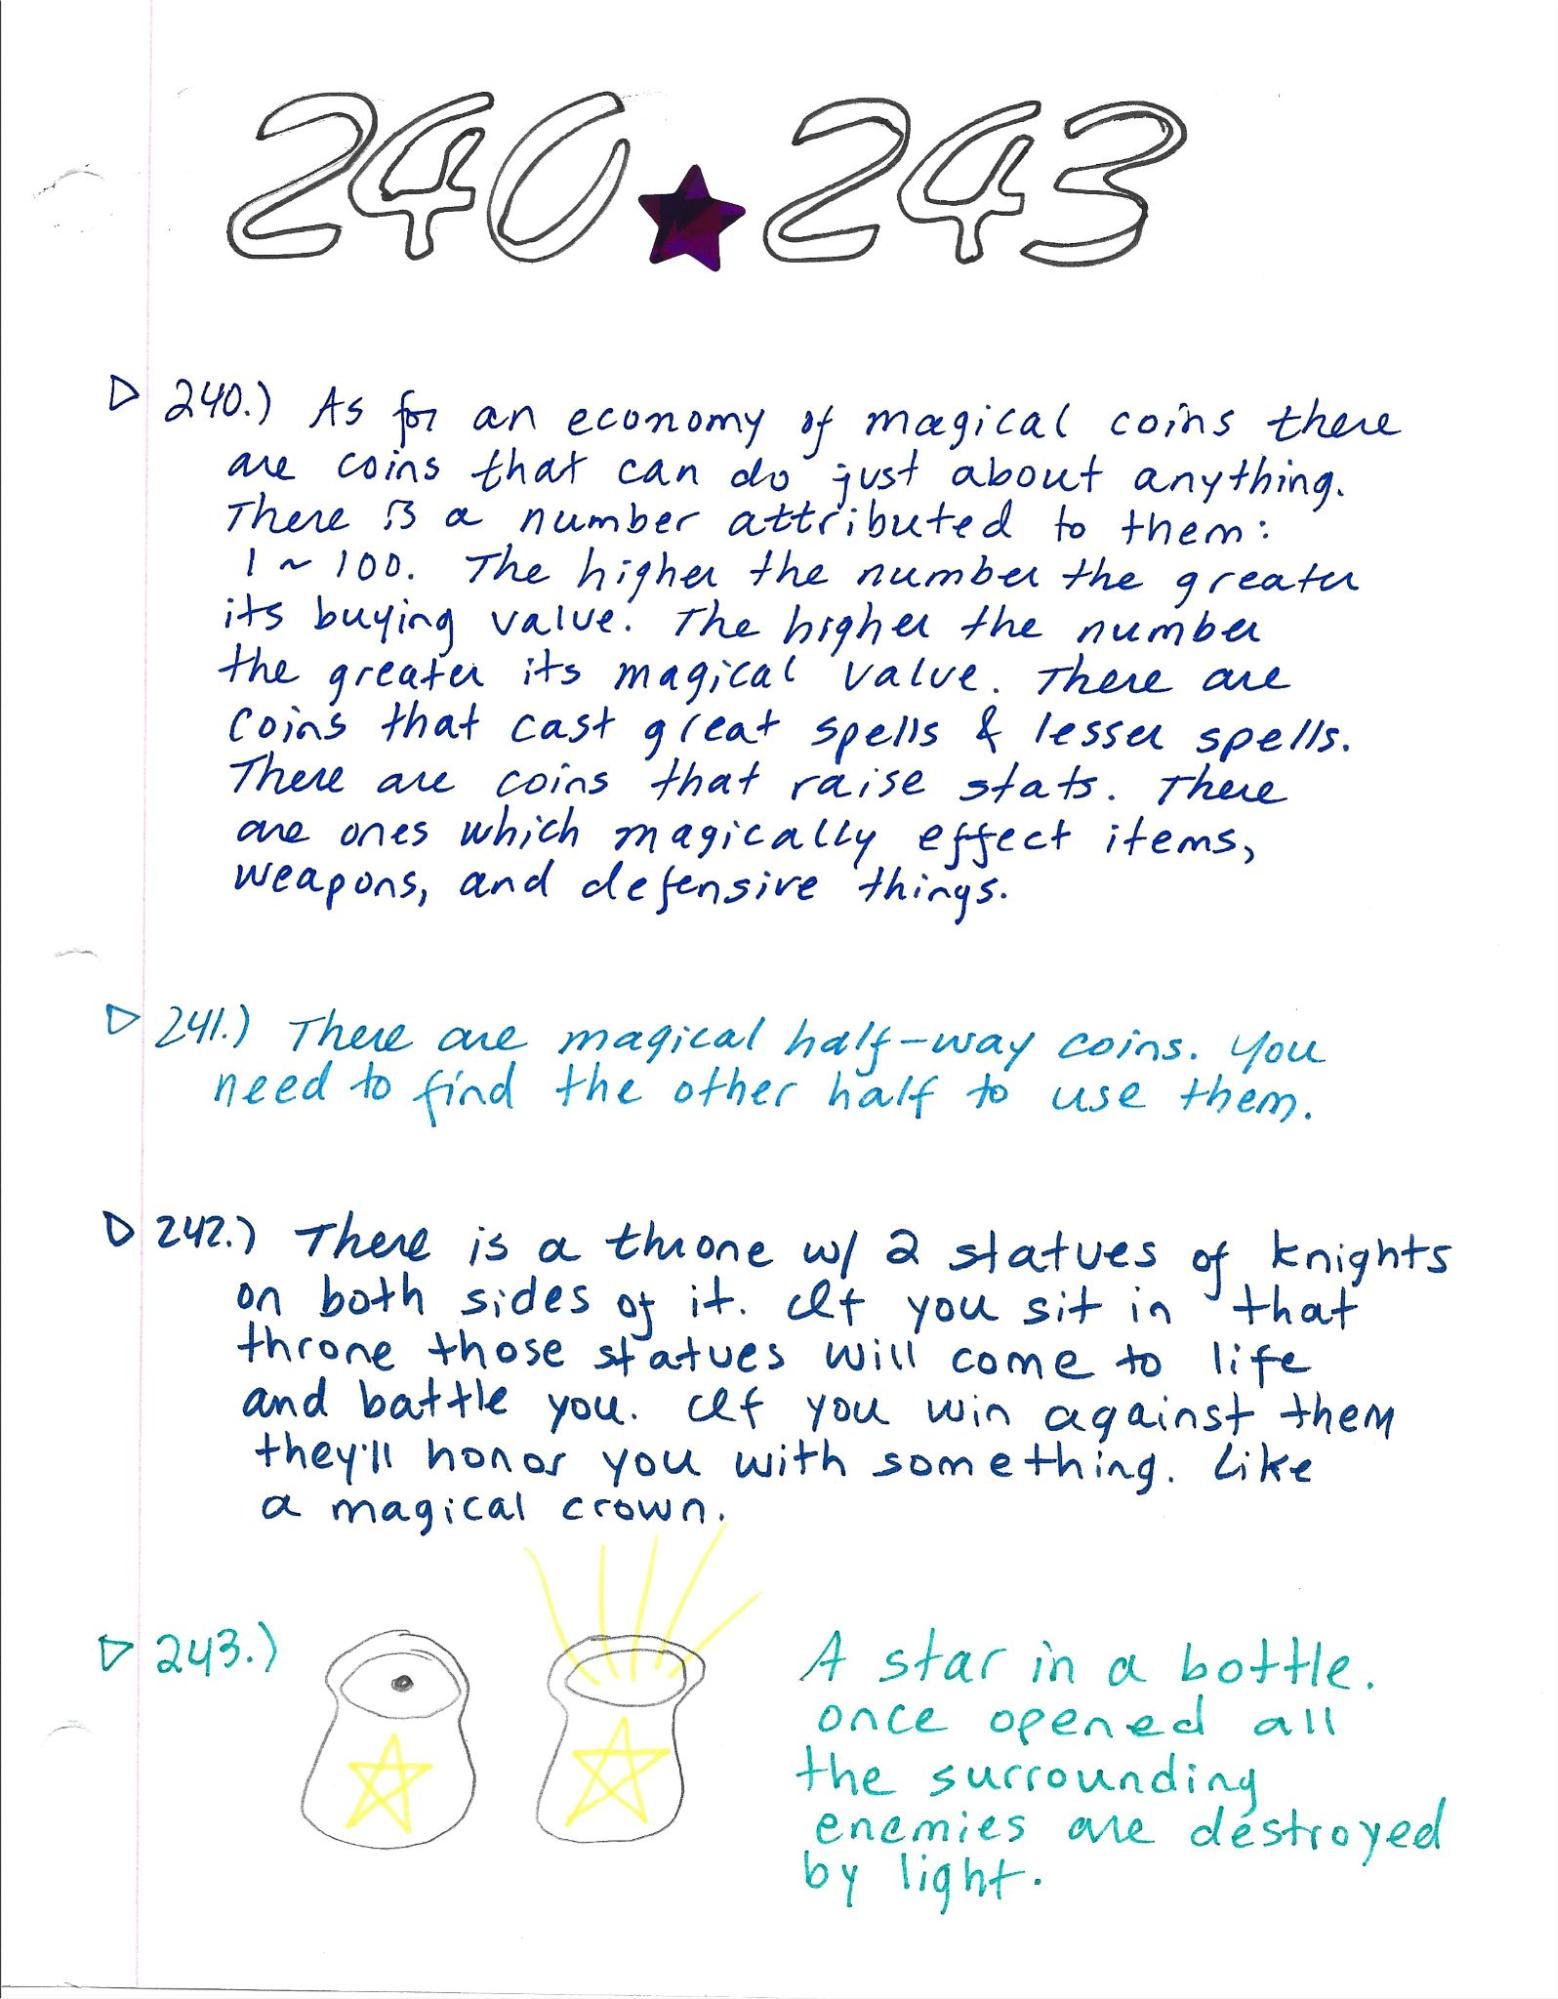 240 243
240.) As for an economy of magical coins there
are coins that can do just about anything.
There is a number attributed to them:
1 ~ 100. The higher the number the greater
its buying value. The higher the number
the greater its magical value. There are
coins that cast great spells & lesser spells.
There are coins that raise stats. There
are ones which magically effect items,
weapons, and defensive things.
241.) There are magical half-way coins. You
need to find the other half to use them.
242.) There is a throne w/ 2 statues of knights
on both sides of it. If you sit in that
throne those statues will come to life
and battle you. If you win against them
they'll honor you with something. Like
a magical crown.
243.) A star in a bottle.
once opened all
the surrounding
enemies are destroyed
by light.